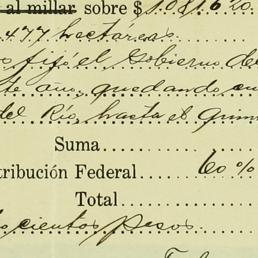 al millar sobre $ 1081620
477 hectáreas
fijó el Gobierno de
te año, quedando en
del Río, hasta el
Suma
tribución Federal 60 %
Total
cientos pesos